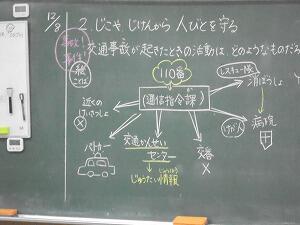 12/8
2. じこや じけんから 人びとを守る
事故!
事件
絵
ことば
交通事故が起きたときの活動は、どのようなものだろ
110番
(通信指令課)
レスキュー隊
消ぼうしょ
近くの
けいさつしょ
けが人
病院
パトカー
交通かんせい
センター
じゅうたい情報
じょうほう
交番